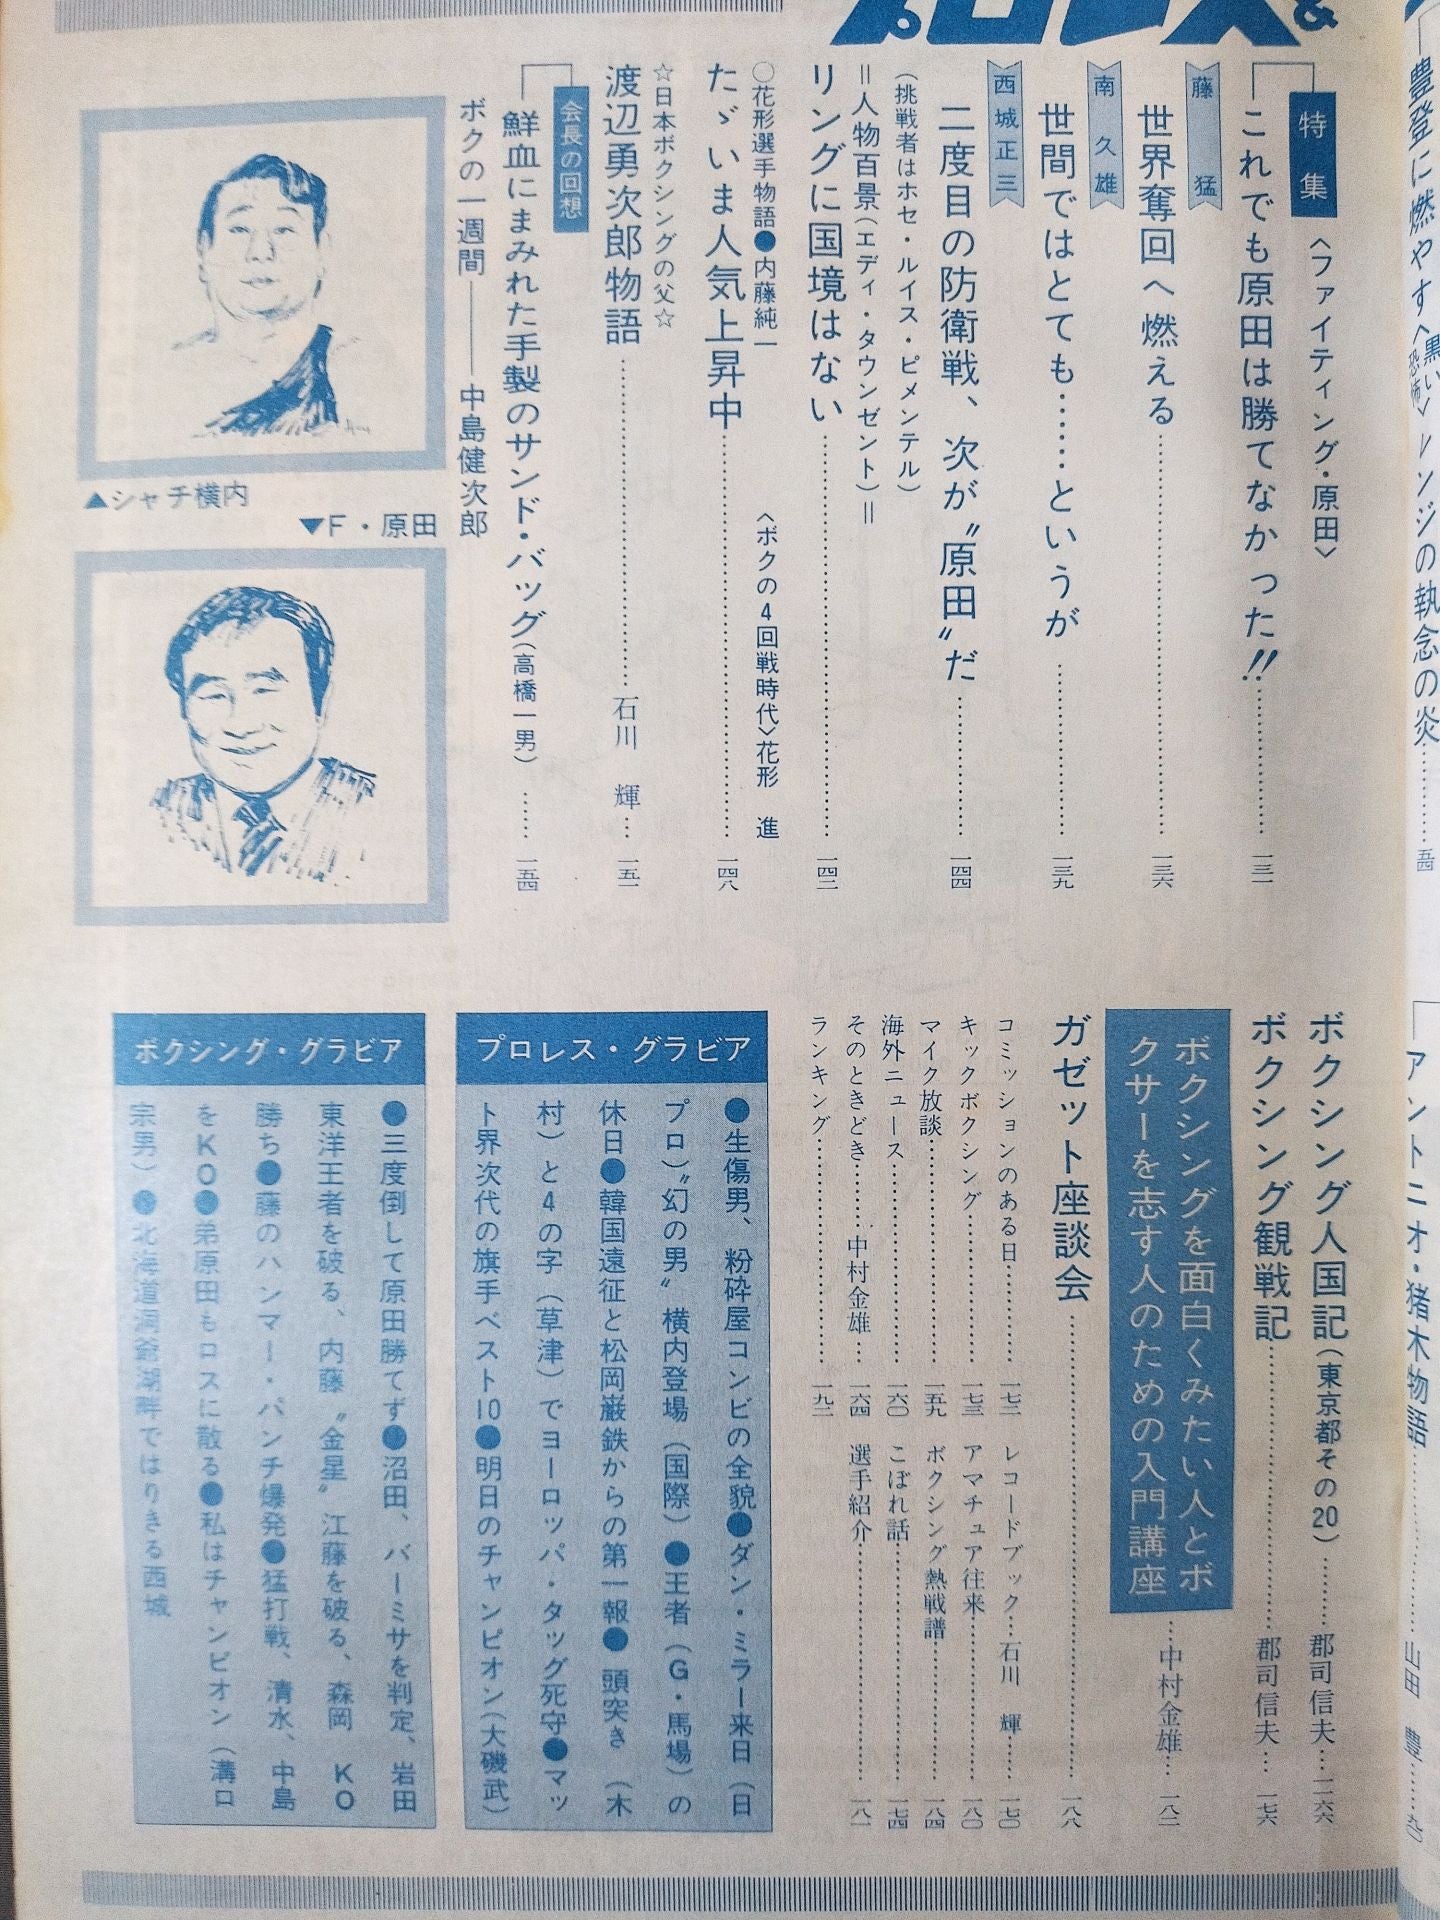 プロレス&
豊登に燃やす〈黒い恐怖〉レンジの執念の炎……五四
アントニオ・猪木物語……山田 豊……九〇
特集
〈ファイティング・原田〉
これでも原田は勝てなかった!!……一三一
藤 猛
世界奪回へ燃える……一三六
南 久雄
世間ではとても……というが……一三九
西城正三
二度目の防衛戦、次が〝原田〟だ……一四四
(挑戦者はホセ・ルイス・ピメンテル)
=人物百景(エディ・タウンゼント)=
リングに国境はない……一四二
○花形選手物語●内藤純一 〈ボクの4回戦時代〉花形 進
たゞいま人気上昇中……一四八
☆日本ボクシングの父☆
渡辺勇次郎物語……石川 輝…一五一
会長の回想
鮮血にまみれた手製のサンド・バッグ(高橋一男)……一五四
ボクの一週間――中島健次郎
▲シャチ横内
▼F・原田
ボクシング人国記(東京都その20)……郡司信夫…一六六
ボクシング観戦記……郡司信夫…一七六
ボクシングを面白くみたい人とボ
クサーを志す人のための入門講座
…中村金雄…一八二
ガゼット座談会……一八八
コミッションのある日……一七二
キックボクシング……一七三
マイク放談……一五九
海外ニュース……一六〇
そのときどき……中村金雄…一六四
ランキング……一九二
レコードブック…石川 輝…一七〇
アマチュア往来……一八〇
ボクシング熱戦譜……一八四
こぼれ話……一七四
選手紹介……一八一
プロレス・グラビア
●生傷男、粉砕屋コンビの全貌●ダン・ミラー来日(日
プロ)〝幻の男〟横内登場(国際)●王者(G・馬場)の
休日●韓国遠征と松岡巌鉄からの第一報●頭突き(木
村)と4の字(草津)でヨーロッパ・タッグ死守●マッ
ト界次代の旗手ベスト10●明日のチャンピオン(大磯武)
ボクシング・グラビア
●三度倒して原田勝てず●沼田、バーミサを判定、岩田
東洋王者を破る、内藤〝金星〟江藤を破る、森岡 KO
勝ち●藤のハンマー・パンチ爆発●猛打戦、清水、中島
をKO●弟原田もロスに散る●私はチャンピオン(溝口
宗男)●北海道洞爺湖畔ではりきる西城